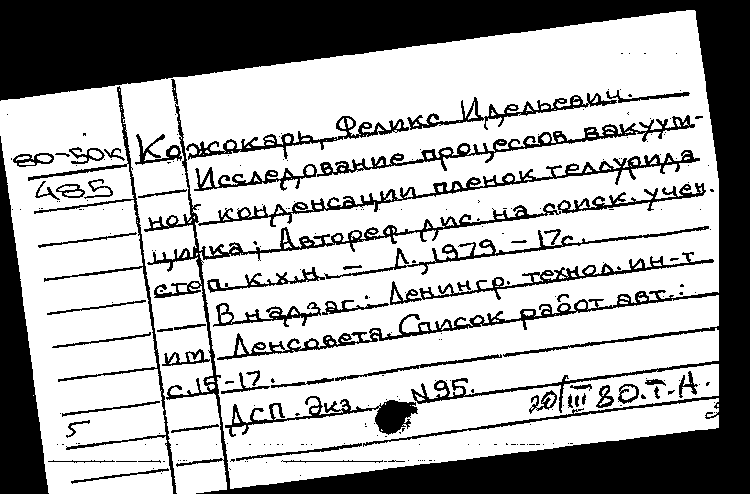 80-50к
485
Кожокарь, Феликс Идельевич.
Исследование процессов вакуум-
ной конденсации пленок теллурида
цинка; Автореф. дис. на соиск. учен.
степ. к.х.н. — Л., 1979. – 17с.
В надзаг.: Ленингр. технол. ин-т
им. Ленсовета. Список работ авт.:
с.15-17.
ДСП. Экз. N95.
20/III 80. Т-А.
5